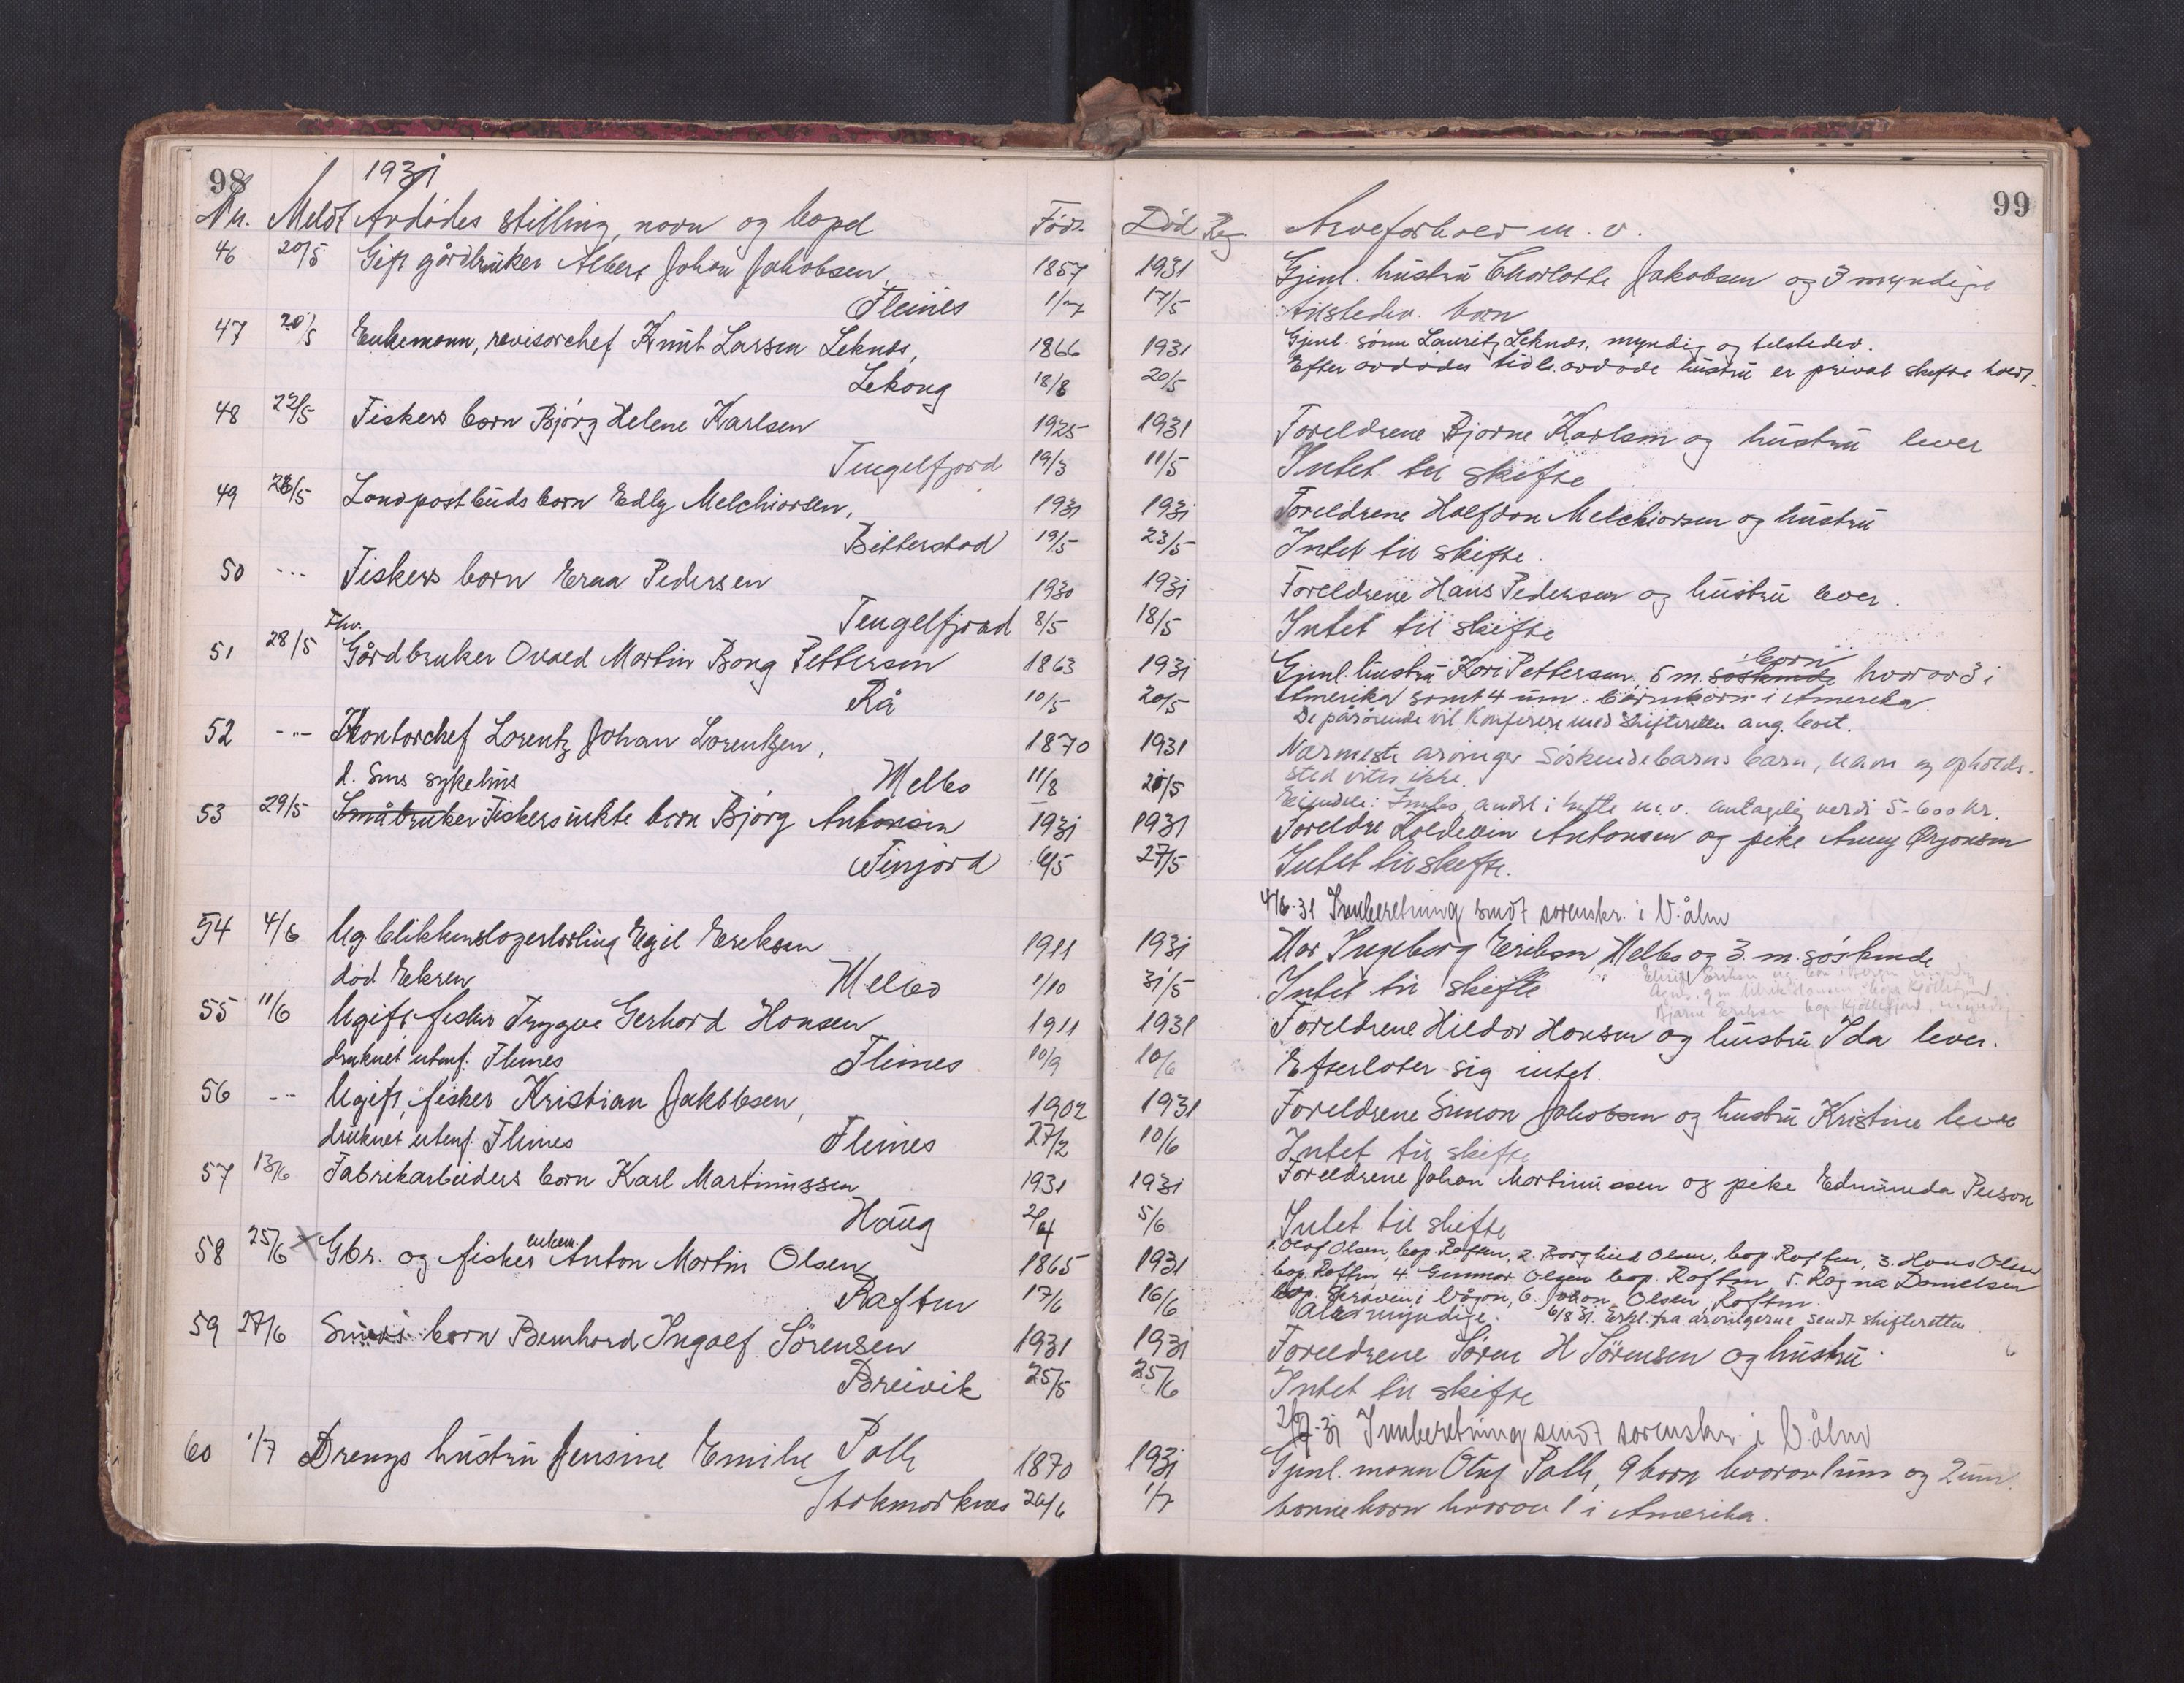 98
1931
Nr. Meldt Avdødes stilling, navn og bopel Født
46 20/5 Gift gårdbruker Albert Johan Jakobsen, 1857
Fleines 1/7
47 20/5 Enkemann, revisorchef Knut Larsen Leknes, 1866
Lekang 18/8
48 22/5 Fiskers barn Bjørg Helene Karlsen 1925
Tengelfjord 19/3
49 26/5 Landpostbuds barn Edly Melchiorsen, 1931
Bitterstad 19/5
50 -"- Fiskers barn Erna Pedersen 1930
Tengelfjord 8/5
Fhv.
51 28/5 Gårdbruker Ovald Martin Bang Pettersen 1863
Rå 10/5
52 -"- Kontorchef Lorentz Johan Lorentzen, 1870
d. Sms sykehus Melbo 11/8
53 29/5 Småbruker Fiskers uekte barn Bjørg Antonsen 1931
Finjord 6/5
54 4/6 Ug. blikkenslagerlærling Egil Eriksen 1911
død Eksen Melbo 1/10
55 11/6 Ugift fisker Trygve Gerhard Hansen 1911
druknet utenf. Fleines Fleines 10/9
56 -"- Ugift, fisker Kristian Jakobsen, 1902
druknet utenf. Fleines Fleines 27/2
57 13/6 Fabrikarbeiders barn Karl Martinussen 1931
Haug 2/4
58 25/6 Gbr. og fisker enkem. Anton Martin Olsen 1865
Raften 17/6
59 27/6 Smeds barn Bernhard Ingolf Sørensen 1931
Breivik 25/5
60 1/7 Drengs hustru Jensine Emilie Palh 1870
Stokmarknes 26/6
99
Død Reg Arveforhold m. v.
1931 Gjenl. hustru Charlotte Jakobsen og 3 myndige
17/5 tilstedev. barn
1931 Gjenl. sønn Lauritz Leknes, myndig og tilstedev.
20/5 Efter avdødes tidl. avdøde hustru er privat skifte holdt.
1931 Foreldrene Bjarne Karlsen og hustru lever
11/5 Intet til skifte
1931 Foreldrene Halfdan Melchiorsen og hustru
23/5 Intet til skifte.
1931 Foreldrene Hans Pedersen og hustru lever.
18/5 Intet til skifte
1931 Gjenl. hustru Kari Pettersen, 5 m. søskende barn hvorav 3 i
20/5 Amerika samt 4 um. barnebarn i Amerika.
De pårørende vil konferere med Skifteretten ang. boet.
1931 Nærmeste arvinger Søskendebarns barn, navn og opholds-
21/5 sted vites ikke.
Eiendele: Innbo, andel i hytte m.v. antagelig verdi 5-600 kr.
1931 Foreldre Holdevin Antonsen og pike Anny Ørjansen
27/5 Intet til skifte.
4/6-31 Innberetning sendt sorenskr. i V.ålen
1931 Mor Ingeborg Eriksen, Melbo og 3 m. søskende
31/5 Intet til skifte
Bjarne Eriksen bop. Kjøllefjord, myndig
1931 Foreldrene Hildor Hansen og hustru Ida lever.
10/6 Efterlater sig intet.
1931 Foreldrene Simon Jakobsen og hustru Kristine lever
10/6 Intet til skifte
1931 Foreldrene Johan Martinussen og pike Edmunda Person
5/6 Intet til skifte
1. Olaf Olsen, bop. Raften, 2. Borghild Olsen, bop. Raften, 3. Hans Olsen
1931 bop. Raften, 4. Gunnar Olsen bop. Raften, 5. Ragna Danielsen
16/6 bop. Skroven i Vågan, 6. Johan Olsen, Raften.
Alle myndige. 6/8 31. Erkl. fra arvingerne sendt skifteretten.
1931 Foreldrene Søren H Sørensen og hustru
25/6 Intet til skifte
2/7-31 Innberetning sendt sorenskr. i V.ålen
1931 Gjenl. mann Oluf Palh, 9 barn hvorav 1 um og 2 um.
1/7 barnebarn hvorav 1 i Amerika.